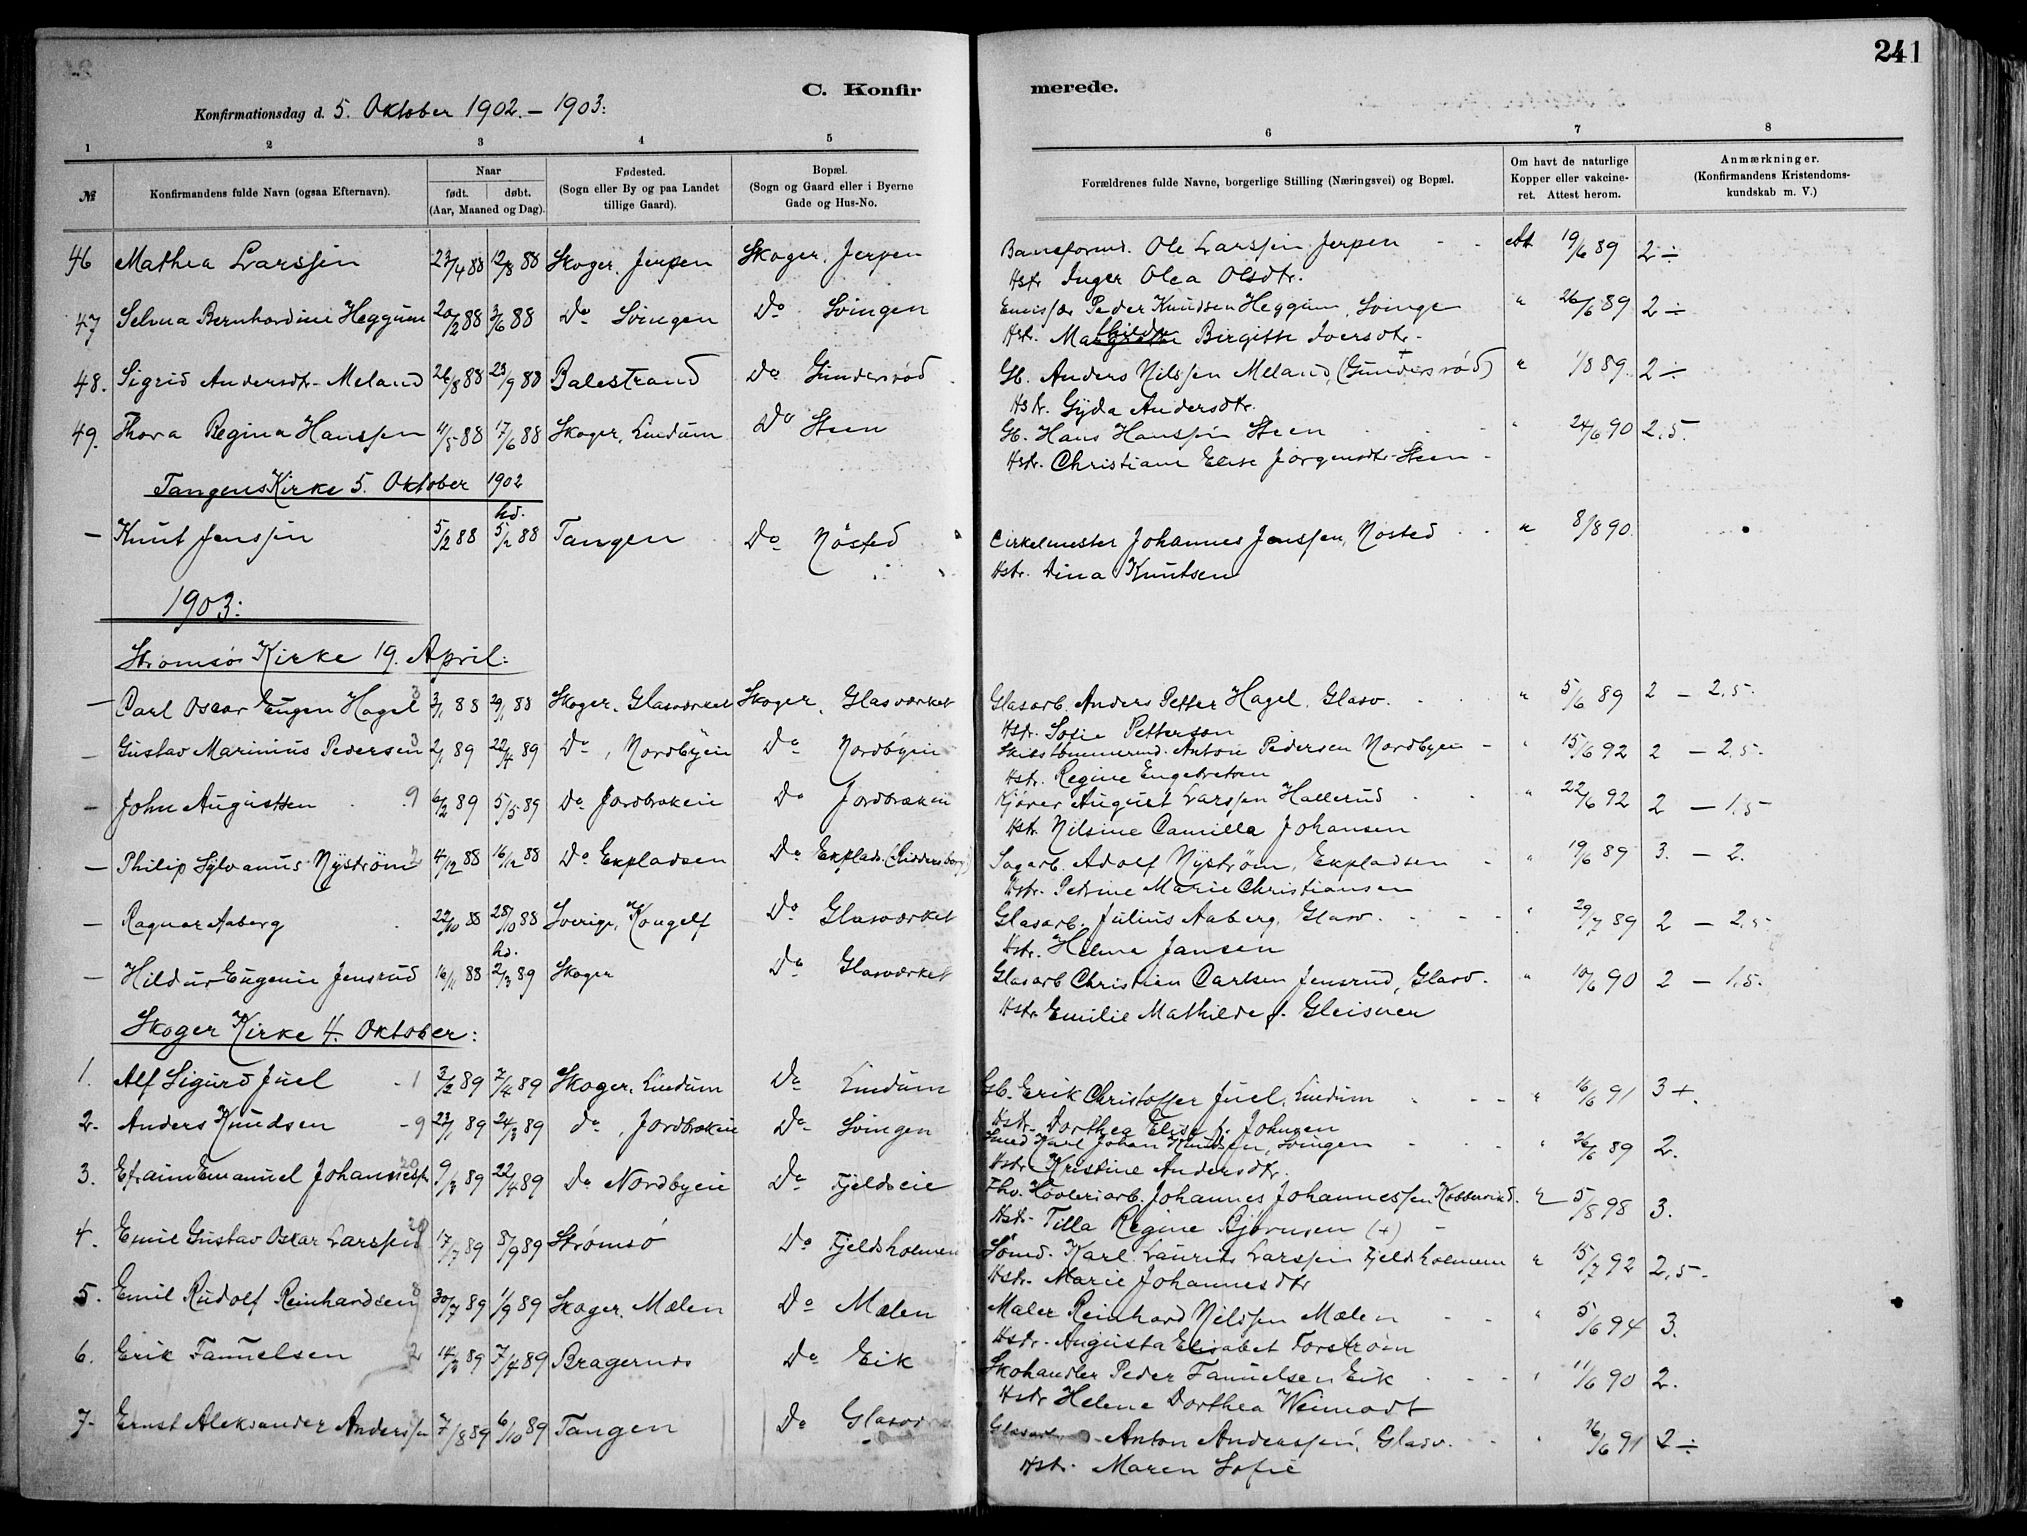 241
C. Konfirmerede.
Konfirmationsdag d. 5. Oktober 1902. – 1903:
1 2 3 4 5 6 7 8
№ Konfirmandens fulde Navn (ogsaa Efternavn). Naar født. døbt. (Aar, Maaned og Dag). Fødested. (Sogn eller By og paa Landet tillige Gaard). Bopæl. (Sogn og Gaard eller i Byerne Gade og Hus-No. Forældrenes fulde Navne, borgerlige Stilling (Næringsvei) og Bopæl. Om havt de naturlige Kopper eller vakcineret. Attest herom. Anmærkninger. (Konfirmandens Kristendomskundskab m. V.)
46 Mathea Larssen 23/4 88 12/8 88 Skoger, Jerpen Skoger, Jerpen Baneformd. Ole Larssen Jerpen Att 19/6 89 2 ÷
Hstr Inger Olea Olsdtr.
47 Selma Bernhardine Heggum 20/2 88 3/6 88 Do Svingen Do Svingen Peder Knudsen Heggum, Svinge " 26/6 89 2 ÷
Hstr. Birgitte Iversdtr.
48. Sigrid Andersdtr. Meland 26/8 88 23/9 88 Balestrand Do Gundersrød Gb. Anders Nilssen Meland, (Gundersrød) " 1/8 89. 2 ÷
Hstr. Gyda Andersdtr.
49. Thora Regina Hanssen 11/5 88 17/6 88 Skoger, Lindum Do Steen Gb. Hans Hanssen Steen " 24/6 90 2,5.
Hstr. Christiane Elise Jørgensdtr. Steen
Tangens Kirke 5. Oktober 1902
– Knut Jenssen 5/2 88 hd. 5/2 88 Tangen Do Nøsted Cirkelmester Johannes Jenssen, Nøsted " 8/8 90.
Hstr. Dina Knutsen
1903:
Strømsø Kirke 19. April:
– Carl Oscar Eugen Hagel 3 3/1 88 29/1 88 Skoger, Glasværket Skoger, Glasværket Glasarb. Anders Petter Hagel, Glasv. " 5/6 89 2 – 2,5.
Hstr. Sofie Petterson
– Gustav Marinius Pedersen 3 2/1 89 22/4 89 Do, Nordbyen Do Nordbyen Skibstømmermd. Anton Pedersen Nordbyen " 15/6 92 2 – 2,5.
Hstr. Regine Engebretsen
– John Augustsen 9 6/2 89 5/5 89 Do Jordbrækken Do Jordbrækken Kjører August Larssen Hallerud " 22/6 92 2 – 1,5
Hstr. Nilsine Camilla Johansen
– Philip Sylvanus Nystrøm 2 4/12 88 16/12 88 Do Ekpladsen Do Ekplads. Sagarb. Adolf Nystrøm, Ekpladsen " 19/6 89 3. – 2.
Hstr. Petrine Marie Christiansen
– Ragnar Aaberg 22/10 88 28/10 88 Sverige, Kongelf Do Glasværket Glasarb. Julius Aaberg, Glasv. " 29/7 89 2 – 2,5
Hstr. Helma Jansen
– Hildur Eugenie Jensrud 16/11 88 hd. 2/3 89 Skoger Do Glasværket Glasarb Christian Carlsen Jensrud, Glasv. " 10/6 90 2 – 1,5.
Hstr. Emilie Mathilde f. Gleisner
Skoger Kirke 4. Oktober:
1. Alf Sigurd Juel - 1 3/2 89 7/4 89 Skoger, Lindum Do Lindum Gb. Erik Christoffer Juel, Lindum " 16/6 91 3 +.
Hstr. Dorthea Elise f. Johnsen
2. Anders Knudsen - 9 23/1 89 24/3 89 do, Jordbrækken Do Svingen Smed Karl Johan Knudsen, Svingen " 26/6 89 2.
Hstr. Kristine Andersdtr.
3. Efraim Emanuel 9/3 89 22/4 89 Do Nordbyen Do Fjeldseie Fhv. Høvleriarb. Johannes Johannessen 5/8 98 3.
Hstr. Tilla Regine Bjørnsen (+)
4. Emil Gustav Oskar Larssen 17/7 89 8/9 89 Strømsø Do Fjeldsholmen Sømd. Karl Laurits Larssen Fjeldsholmen " 15/7 92 2,5.
Hstr. Marie Johannesdtr
5. Emil Rudolf Reinhardsen 8 30/7 89 1/9 89 Skoger, Mælen Do Mælen Maler Reinhard Nilssen Mælen " 5/6 94 3.
Hstr. Augusta Elisabet Forstrøm
6. Erik Fanuelsen 2 14/3 89 7/4 89 Bragernes Do Eik Skohandler Peder Fanuelsen Eik " 11/6 90 2.
Hstr Helene Dorthea Weinodt
7. Ernst Aleksander Anderssen 7/8 89 6/10 89 Tangen Do Glasv Glasarb. Anton Anderssen, Glasv. " 26/6 91 2 ÷
Hstr. Maren Sofie